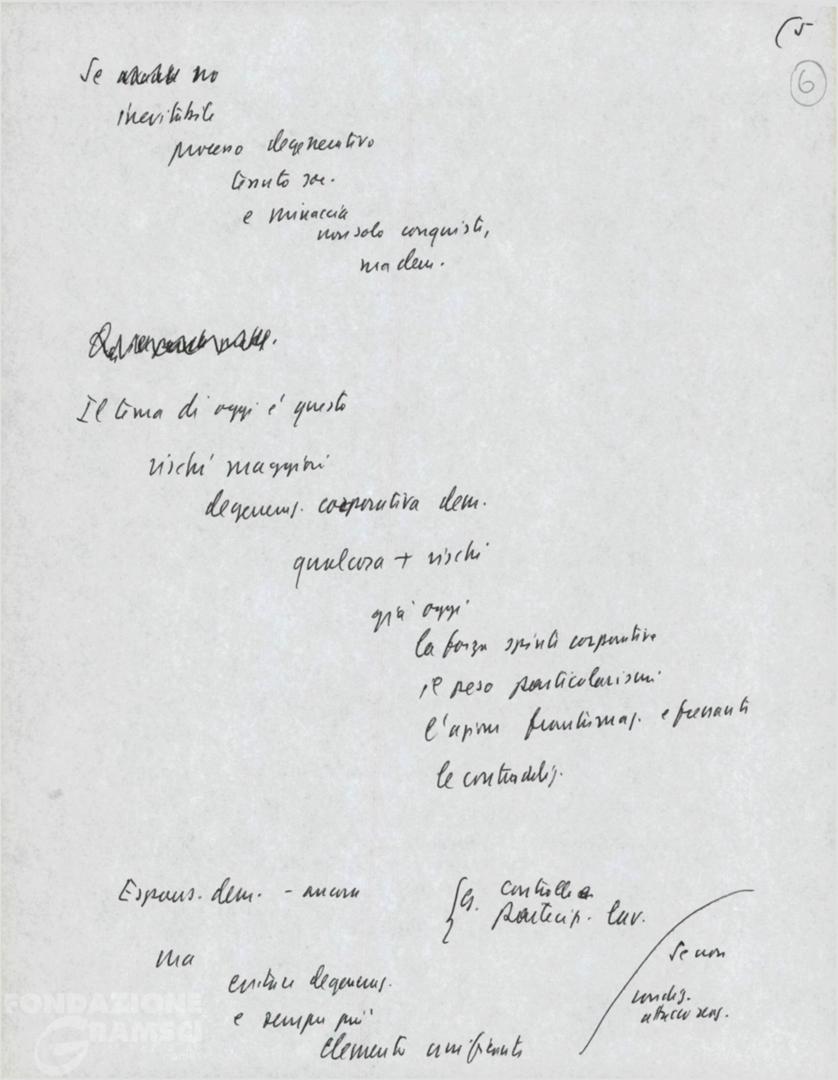 (5
6
Se no
inevitabile
processo degenerativo
tessuto soc.
e minaccia
non solo conquiste,
ma dem.
Il tema di oggi è questo
rischi maggiori
degeneraz. corporativa dem.
qualcosa + rischi
già oggi
la forza spinte corporative
il peso particolarismi
l'azione e frenanti
le contraddiz.
Espans. dem. - ancora
es. controllo
partecip. lav.
ma
evitare degeneraz.
e sempre più
elemento unificante
Se non
condiz.
attacco
FONDAZIONE
GRAMSCI